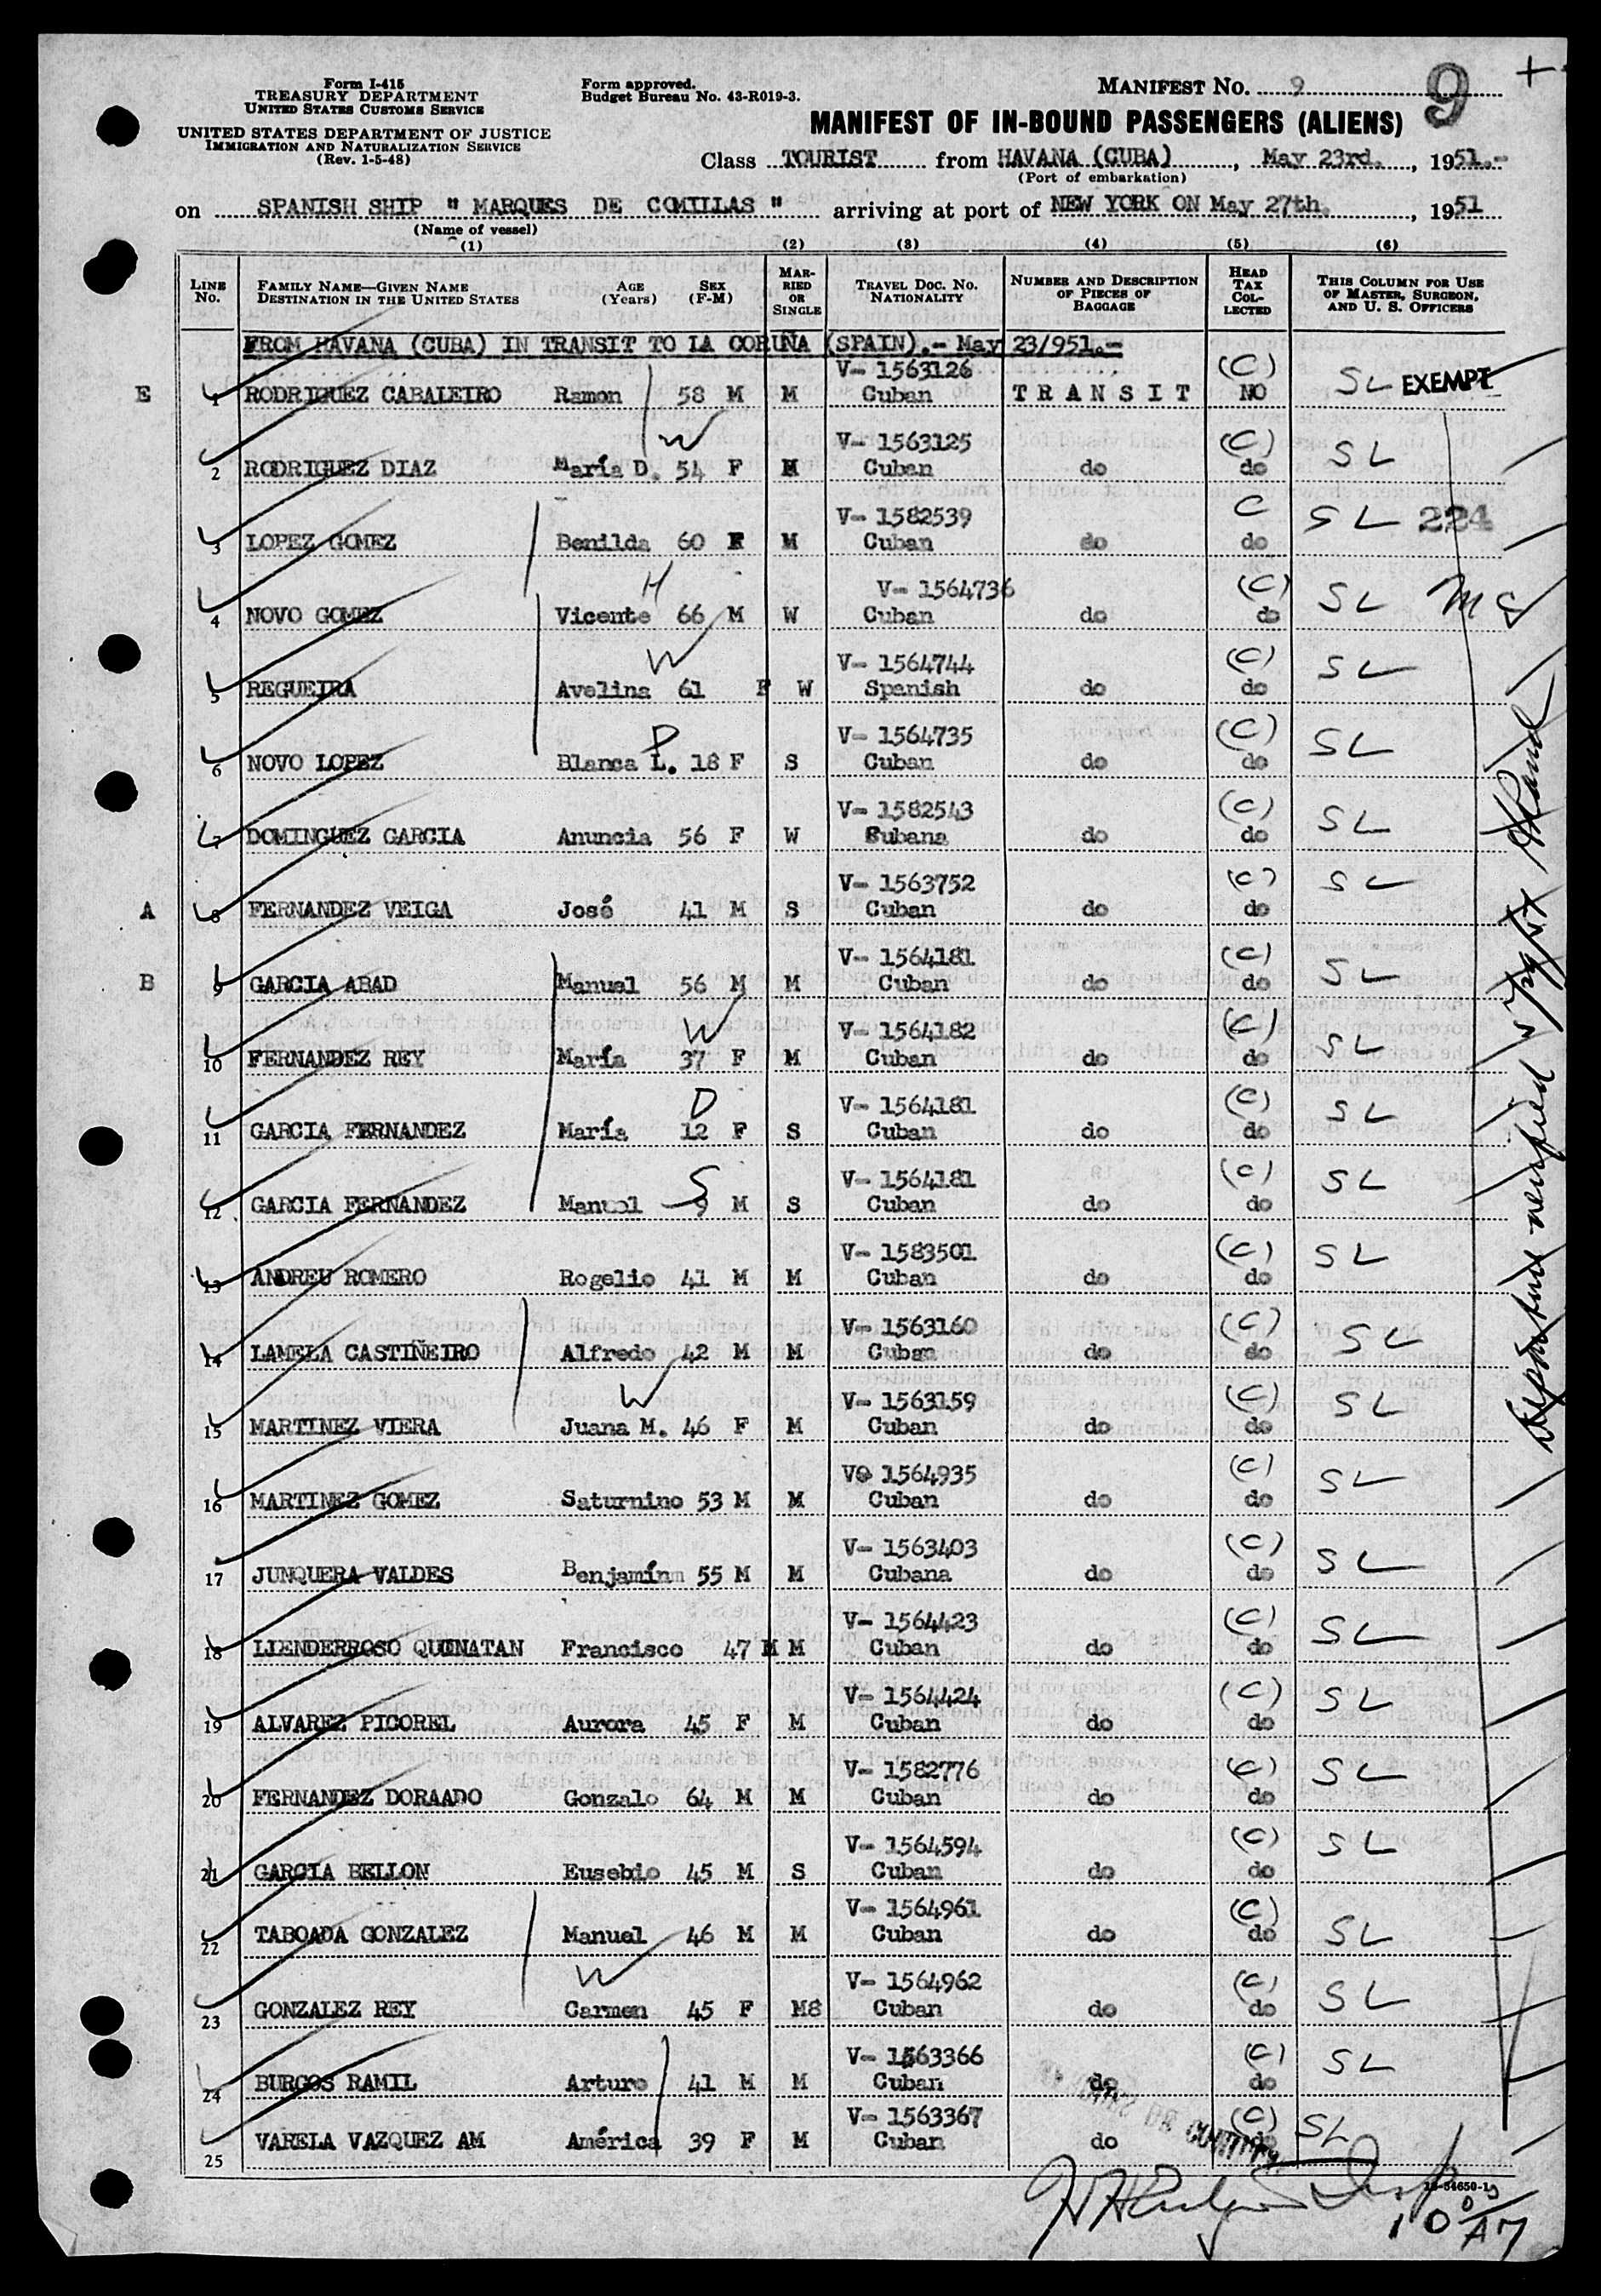 Form I-415
TREASURY DEPARTMENT
UNITED STATES CUSTOMS SERVICE
UNITED STATES DEPARTMENT OF JUSTICE
IMMIGRATION AND NATURALIZATION SERVICE
(Rev. 1-5-48)
Form approved.
Budget Bureau No. 43-R019-3.
MANIFEST No. 9
9
MANIFEST OF IN-BOUND PASSENGERS (ALIENS)
Class TOURIST from HAVANA (CUBA), May 23rd., 1951.-
(Port of embarkation)
on SPANISH SHIP " MARQUES DE COMILLAS " arriving at port of NEW YORK ON May 27th., 1951
(Name of vessel)
(1) (2) (3) (4) (5) (6)
LINE No. FAMILY NAME—GIVEN NAME DESTINATION IN THE UNITED STATES AGE (Years) SEX (F-M) MARRIED OR SINGLE TRAVEL DOC. NO. NATIONALITY NUMBER AND DESCRIPTION OF PIECES OF BAGGAGE HEAD TAX COLLECTED THIS COLUMN FOR USE OF MASTER, SURGEON, AND U. S. OFFICERS
FROM HAVANA (CUBA) IN TRANSIT TO LA CORUÑA (SPAIN).- May 23/951.-
V- 1563126 (C)
E 1 RODRIGUEZ CABALEIRO Ramon 58 M M Cuban TRANSIT NO SL EXEMPT
W V- 1563125 (C)
2 RODRIGUEZ DIAZ María D. 54 F M Cuban do do SL
V- 1582539 C
3 LOPEZ GOMEZ Benilda 60 F M Cuban do do SL 224
H V- 1564736 (C)
4 NOVO GOMEZ Vicente 66 M W Cuban do do SL
W V- 1564744 (C)
5 REGUEIRA Avelina 61 F W Spanish do do SL
D V- 1564735 (C)
6 NOVO LOPEZ Blanca L. 18 F S Cuban do do SL
V- 1582543 (C)
7 DOMINGUEZ GARCIA Anuncia 56 F W Cubana do do SL
V- 1563752 (C)
A 8 FERNANDEZ VEIGA José 41 M S Cuban do do SL
V- 1564181 (C)
B 9 GARCIA ABAD Manuel 56 M M Cuban do do SL
W V- 1564182 (C)
10 FERNANDEZ REY María 37 F M Cuban do do SL
D V- 1564181 (C)
11 GARCIA FERNANDEZ María 12 F S Cuban do do SL
S V- 1564181 (C)
12 GARCIA FERNANDEZ Manuel 9 M S Cuban do do SL
V- 1583501 (C)
13 ANDREU ROMERO Rogelio 41 M M Cuban do do SL
V- 1563160 (C)
14 LAMELA CASTIÑEIRO Alfredo 42 M M Cuban do do SL
W V- 1563159 (C)
15 MARTINEZ VIERA Juana M. 46 F M Cuban do do SL
V- 1564935 (C)
16 MARTINEZ GOMEZ Saturnino 53 M M Cuban do do SL
V- 1563403 (C)
17 JUNQUERA VALDES Benjamínn 55 M M Cubana do do SL
V- 1564423 (C)
18 LIENDERROSO QUINATAN Francisco 47 M M Cuban do do SL
V- 1564424 (C)
19 ALVAREZ PICOREL Aurora 45 F M Cuban do do SL
V- 1582776 (C)
20 FERNANDEZ DORAADO Gonzalo 64 M M Cuban do do SL
V- 1564594 (C)
21 GARCIA BELLON Eusebio 45 M S Cuban do do SL
V- 1564961 (C)
22 TABOADA GONZALEZ Manuel 46 M M Cuban do do SL
W V- 1564962 (C)
23 GONZALEZ REY Carmen 45 F MS Cuban do do SL
V- 1563366 (C)
24 BURGOS RAMIL Arturo 41 M M Cuban do do SL
V- 1563367 (C)
25 VARELA VAZQUEZ AM América 39 F M Cuban do SL
Departure verified
16-54650-1